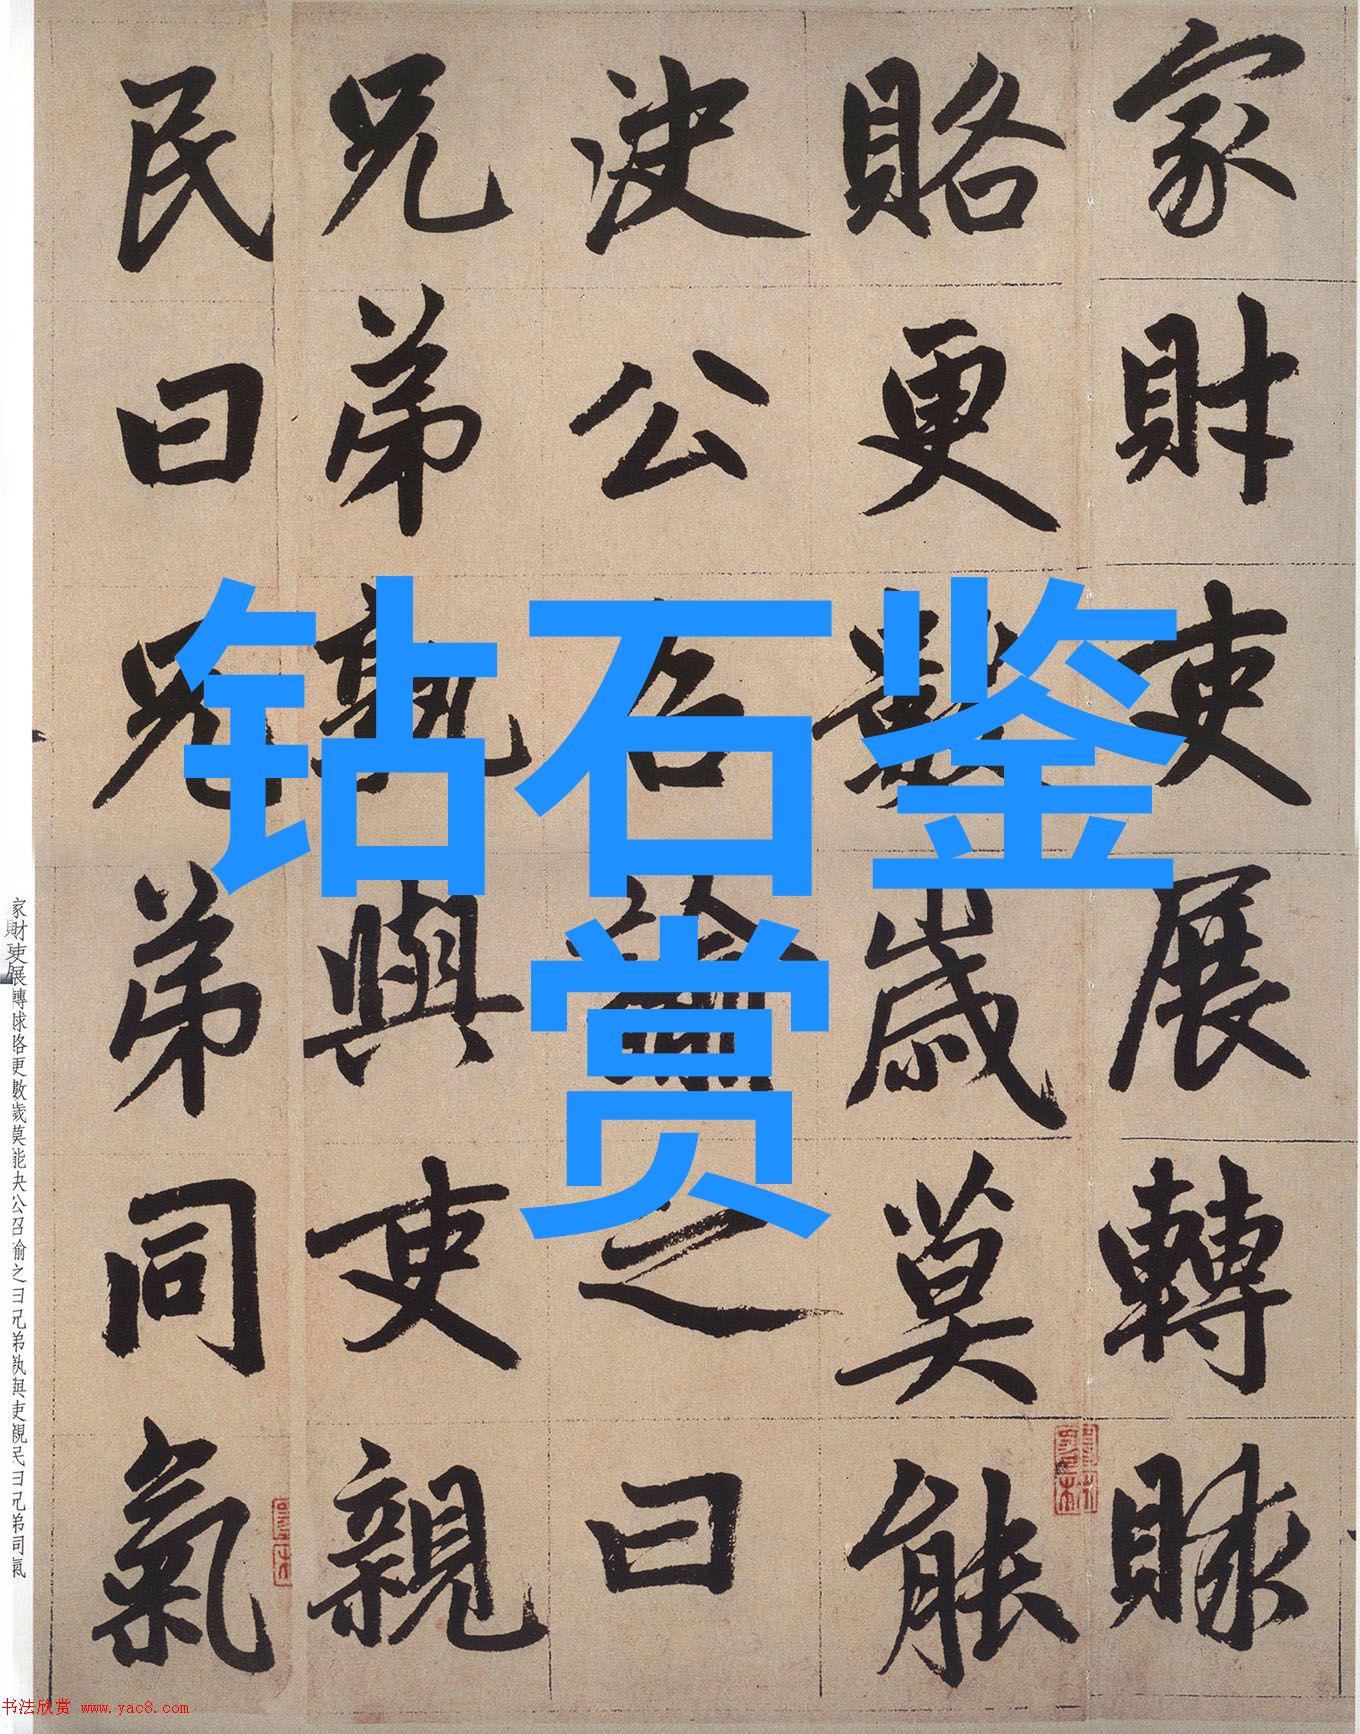 家財吏展轉賕
賂更數歲莫能
決公召諭之曰
兄弟孰與吏親
民曰兄弟同氣
钻石鉴
赏
家財吏展轉賕賂更數歲莫能決公召諭之曰兄弟孰與吏親民曰兄弟同氣
书法欣赏 www.yac8.com